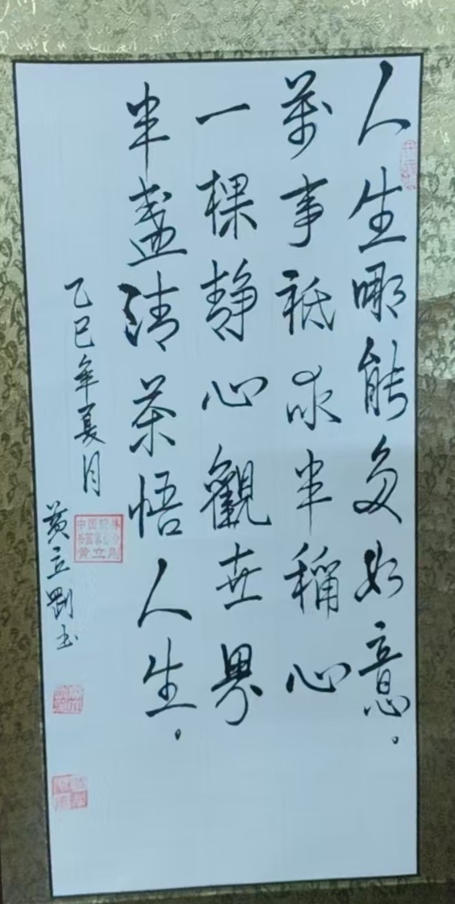 人生哪能多如意。
萬事祗求半稱心
一棵静心觀世界
半盞清茶悟人生。
乙巳年夏月
黄立剛书